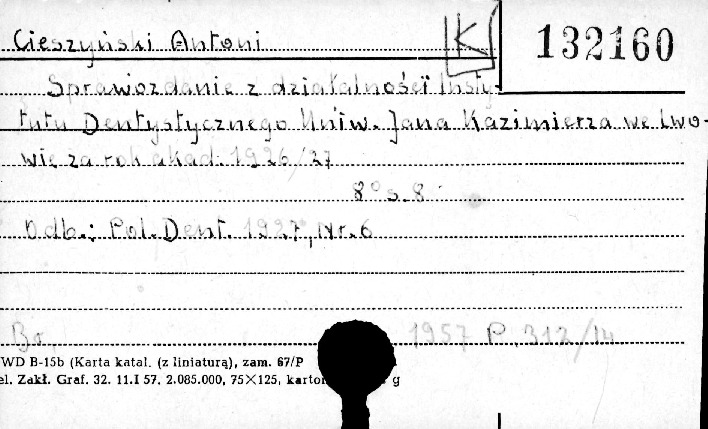 Cieszyński Antoni
K
132160
Sprawozdanie z działalności Insty-
tutu Dentystycznego Uniw. Jana Kazimierza we Lwo-
wie za rok akad. 1926/27
8° s. 8
Odb.: Pol. Dent. 1927, Nr. 6
Br.
1957 P. 312/14
WD B-15b (Karta katal. (z liniaturą), zam. 67/P
el. Zakł. Graf. 32. 11.I 57. 2.085.000, 75×125, karton g